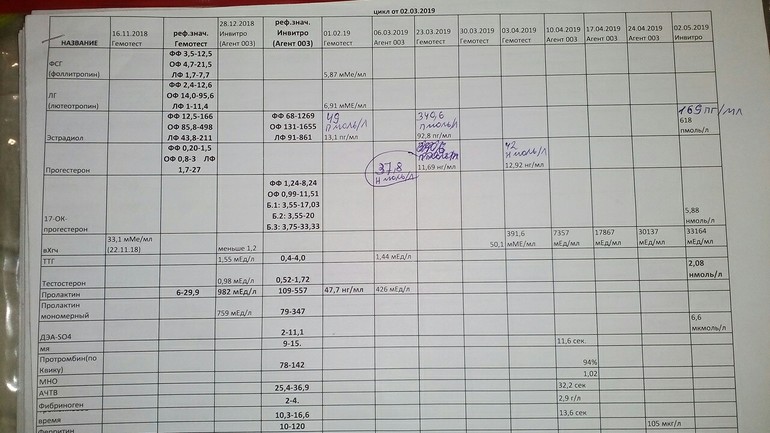 цикл от 02.03.2019
НАЗВАНИЕ 16.11.2018 Гемотест реф.знач. Гемотест 28.12.2018 Инвитро (Агент 003) реф.знач. Инвитро (Агент 003) 01.02.19 Гемотест 06.03.2019 Агент 003 23.03.2019 Гемотест 30.03.2019 Гемотест 03.04.2019 Гемотест 10.04.2019 Агент 003 17.04.2019 Агент 003 24.04.2019 Агент 003 02.05.2019 Инвитро
ФСГ (фоллитропин) ФФ 3,5-12,5 ОФ 4,7-21,5 ЛФ 1,7-7,7 5,87 мМе/мл
ЛГ (лютеотропин) ФФ 2,4-12,6 ОФ 14,0-95,6 ЛФ 1-11,4 6,91 мМЕ/мл
Эстрадиол ФФ 12,5-166 ОФ 85,8-498 ЛФ 43,8-211 ФФ 68-1269 ОФ 131-1655 ЛФ 91-861 49 пмоль/л 13,1 пг/мл 340,6 пмоль/л 92,8 пг/мл 169 пг/мл 618 пмоль/л
Прогестерон ФФ 0,20-1,5 ОФ 0,8-3 ЛФ 1,7-27 37,8 нмоль/л 11,69 нг/мл 42 нмоль/л 12,92 нг/мл
17-ОК-прогестерон ФФ 1,24-8,24 ОФ 0,99-11,51 Б.1: 3,55-17,03 Б.2: 3,55-20 Б.3: 3,75-33,33 5,88 нмоль/л
вХгч 33,1 мМе/мл (22.11.18) меньше 1,2 50,1 391,6 мМЕ/мл 7357 мЕд/мл 17867 мЕд/мл 30137 мЕд/мл 33164 мЕд/мл
ТТГ 1,55 мЕд/л 0,4-4,0 1,44 мЕд/л
Тестостерон 0,98 мЕд/л 0,52-1,72 2,08 нмоль/л
Пролактин 6-29,9 982 мЕд/л 109-557 47,7 нг/мл 426 мЕд/л
Пролактин мономерный 759 мЕд/л 79-347
ДЭА-SO4 2-11,1 6,6 мкмоль/л
мя 9-15. 11,6 сек.
Протромбин(по Квику) 78-142 94%
МНО 1,02
АЧТВ 25,4-36,9 32,2 сек
Фибриноген 2-4. 2,9 г/л
время 10,3-16,6 13,6 сек
Ферритин 10-120 105 мкг/л